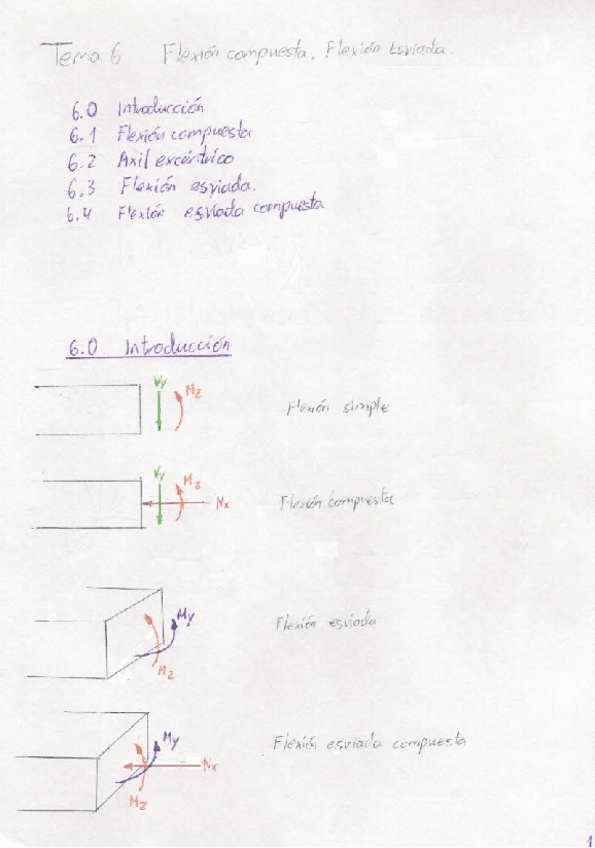 Tema 6 Flexión compuesta, Flexión Esviada.
6.0 Introducción
6.1 Flexión compuesta
6.2 Axil excéntrico
6.3 Flexión esviada.
6.4 Flexión esviada compuesta
6.0 Introducción
Vy Mz
Flexión simple
Vy Mz Nx
Flexión compuesta
My
Flexión esviada
Mz
My
Flexión esviada compuesta
Nx
Mz
1